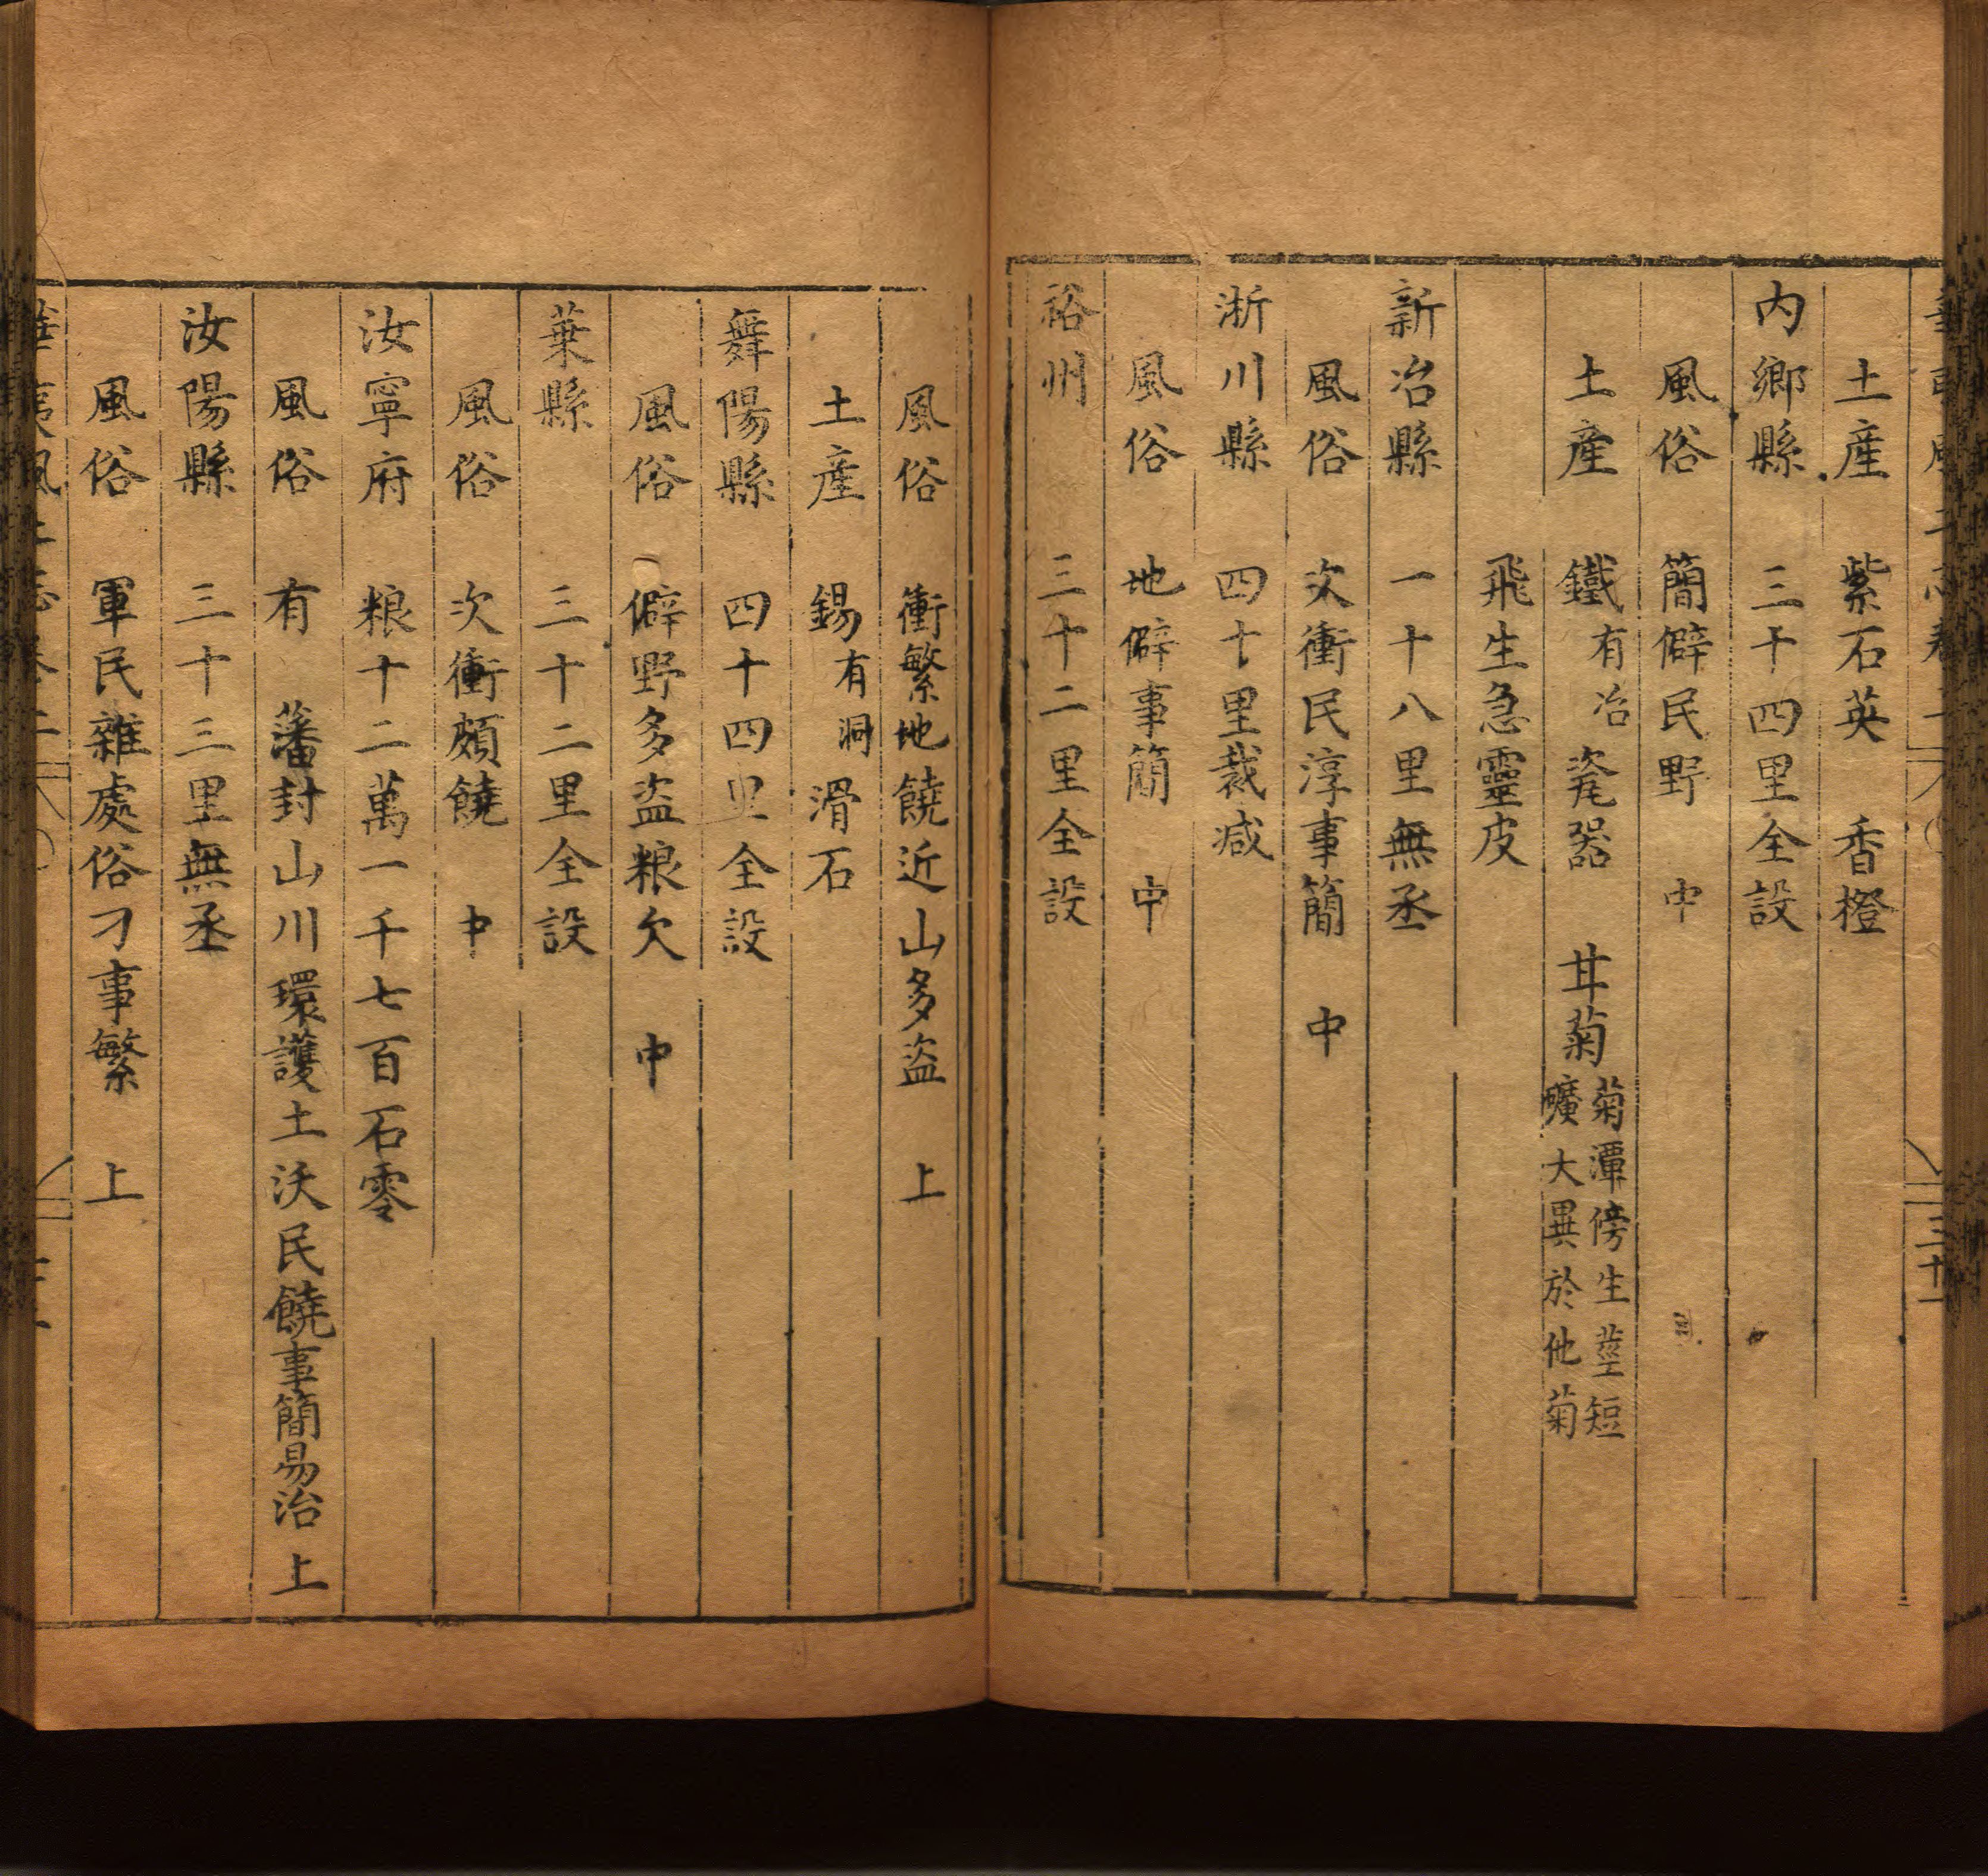 土産 紫石英 香橙
内鄉縣 三十四里全設
風俗 簡僻民野 中
土產 鐵有冶 瓷器 甘菊菊潭傍生莖短礦大異於他菊
飛生急靈皮
新冶縣 一十八里無丞
風俗 次衝民淳事簡 中
淅川縣 四十里裁减
風俗 地僻事簡 中
裕州 三十二里全設
風俗 衝繁地饒近山多盗 上
土産 錫有洞 滑石
舞陽縣 四十四里全設
風俗 僻野多盗粮欠 中
葉縣 三十二里全設
風俗 次衝頗饒 中
汝寧府 粮十二萬一千七百石零
風俗 有 藩封山川環護土沃民饒事簡易治 上
汝陽縣 三十三里無丞
風俗 軍民雜處俗刁事繁 上